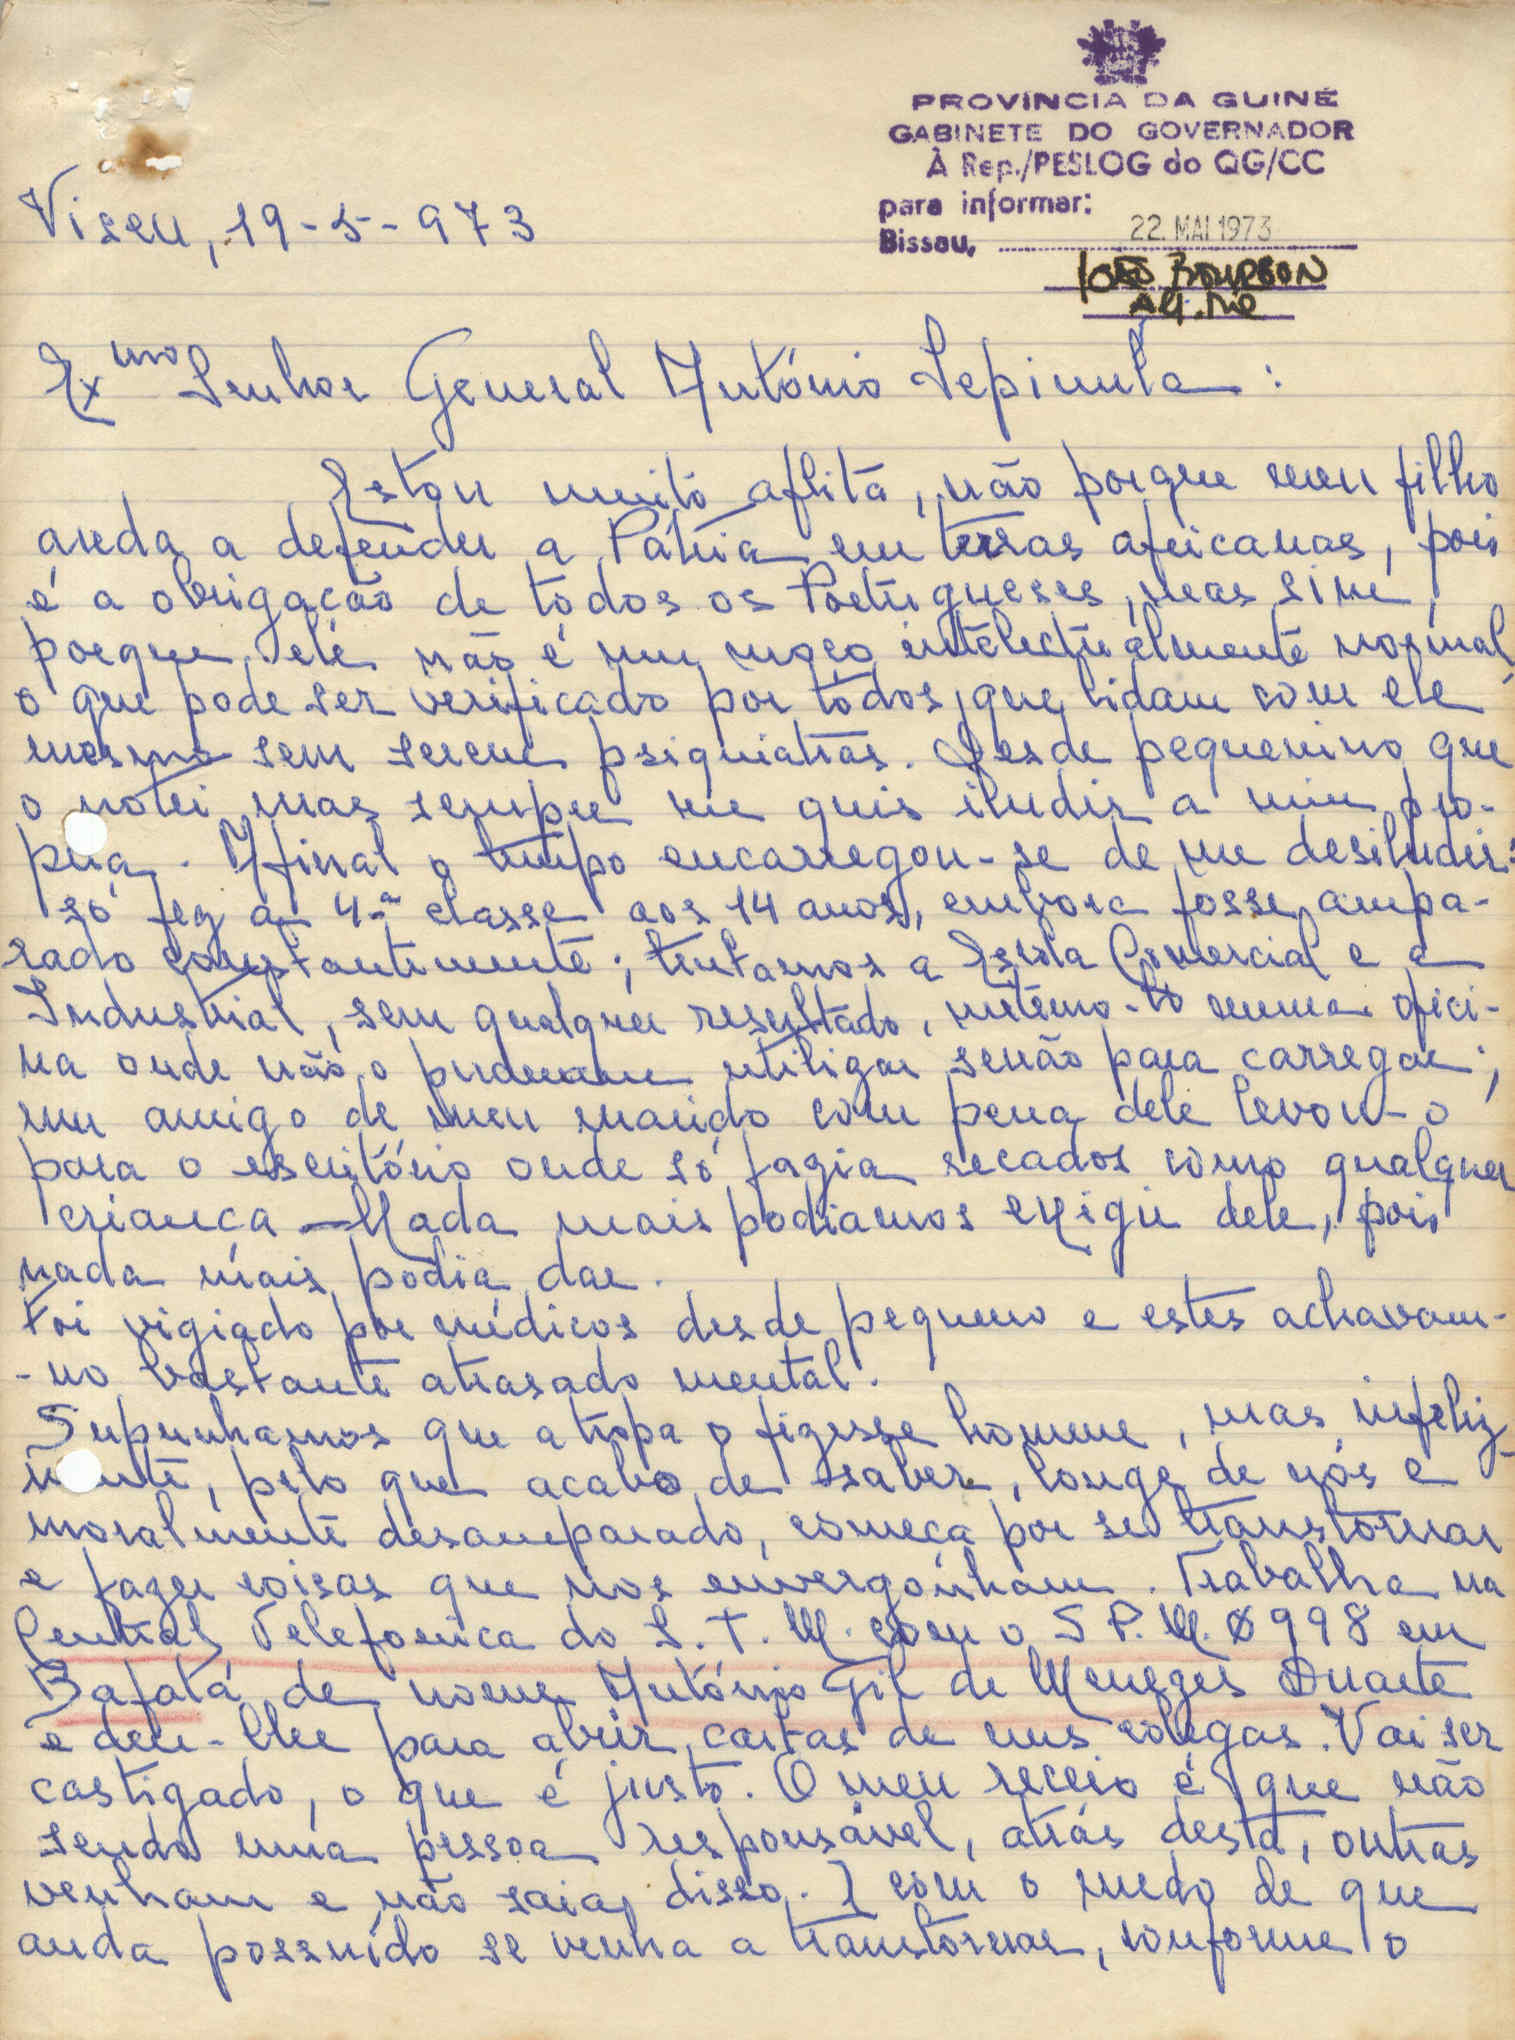 PROVÍNCIA DA GUINÉ
GABINETE DO GOVERNADOR
À Rep./PESLOG do QG/CC
para informar:
Bissau, 22. MAI 1973
Viseu, 19-5-973
Exmo Senhor General António Sepinula:
Estou muito aflita, não porque meu filho
anda a defender a Pátria em terras africanas, pois
é a obrigação de todos os Portugueses, mas sim,
porque ele não é um moço intelectualmente normal,
o que pode ser verificado por todos que lidam com ele
mesmo sem serem psiquiatras. Desde pequenino que
o notei mas sempre me quis iludir a mim pró-
pria. Afinal o tempo encarregou-se de me desiludir:
só fez a 4.ª classe aos 14 anos, embora fosse ampa-
rado constantemente; tentamos a Escola Comercial e a
Industrial, sem qualquer resultado, metemo-lo numa ofici-
na onde não o puderam utilizar senão para carregar;
um amigo de meu marido com pena dele levou-o
para o escritório onde só fazia recados como qualquer
criança - Nada mais podiamos exigir dele, pois
nada mais podia dar.
Foi vigiado por médicos desde pequeno e estes achavam-
-no bastante atrasado mental.
Supunhamos que a tropa o fizesse homem, mas infeliz-
mente, pelo que acabo de saber, longe de nós e
moralmente desamparado, começa por se transtornar
e fazer coisas que nos envergonham. Trabalha na
Central Telefonica do S.T.M. com o S P. M. 0998 em
Bafatá de nome António Gil de Menezes Duarte
e deu-lhe para abrir cartas de uns colegas. Vai ser
castigado, o que é justo. O meu receio é que não
sendo uma pessoa responsável, atrás desta, outras
venham e não saia disso. E com o medo de que
anda possuído se venha a transtornar, conforme o